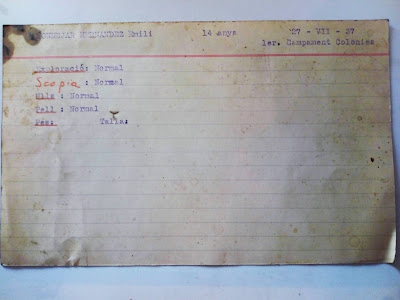 HERNANDEZ Emili 14 anys 27 - VII - 37
1er. Campament Colonies
Exploració: Normal
Scopia : Normal
Ulls : Normal
Pell : Normal
Pes: Talla: